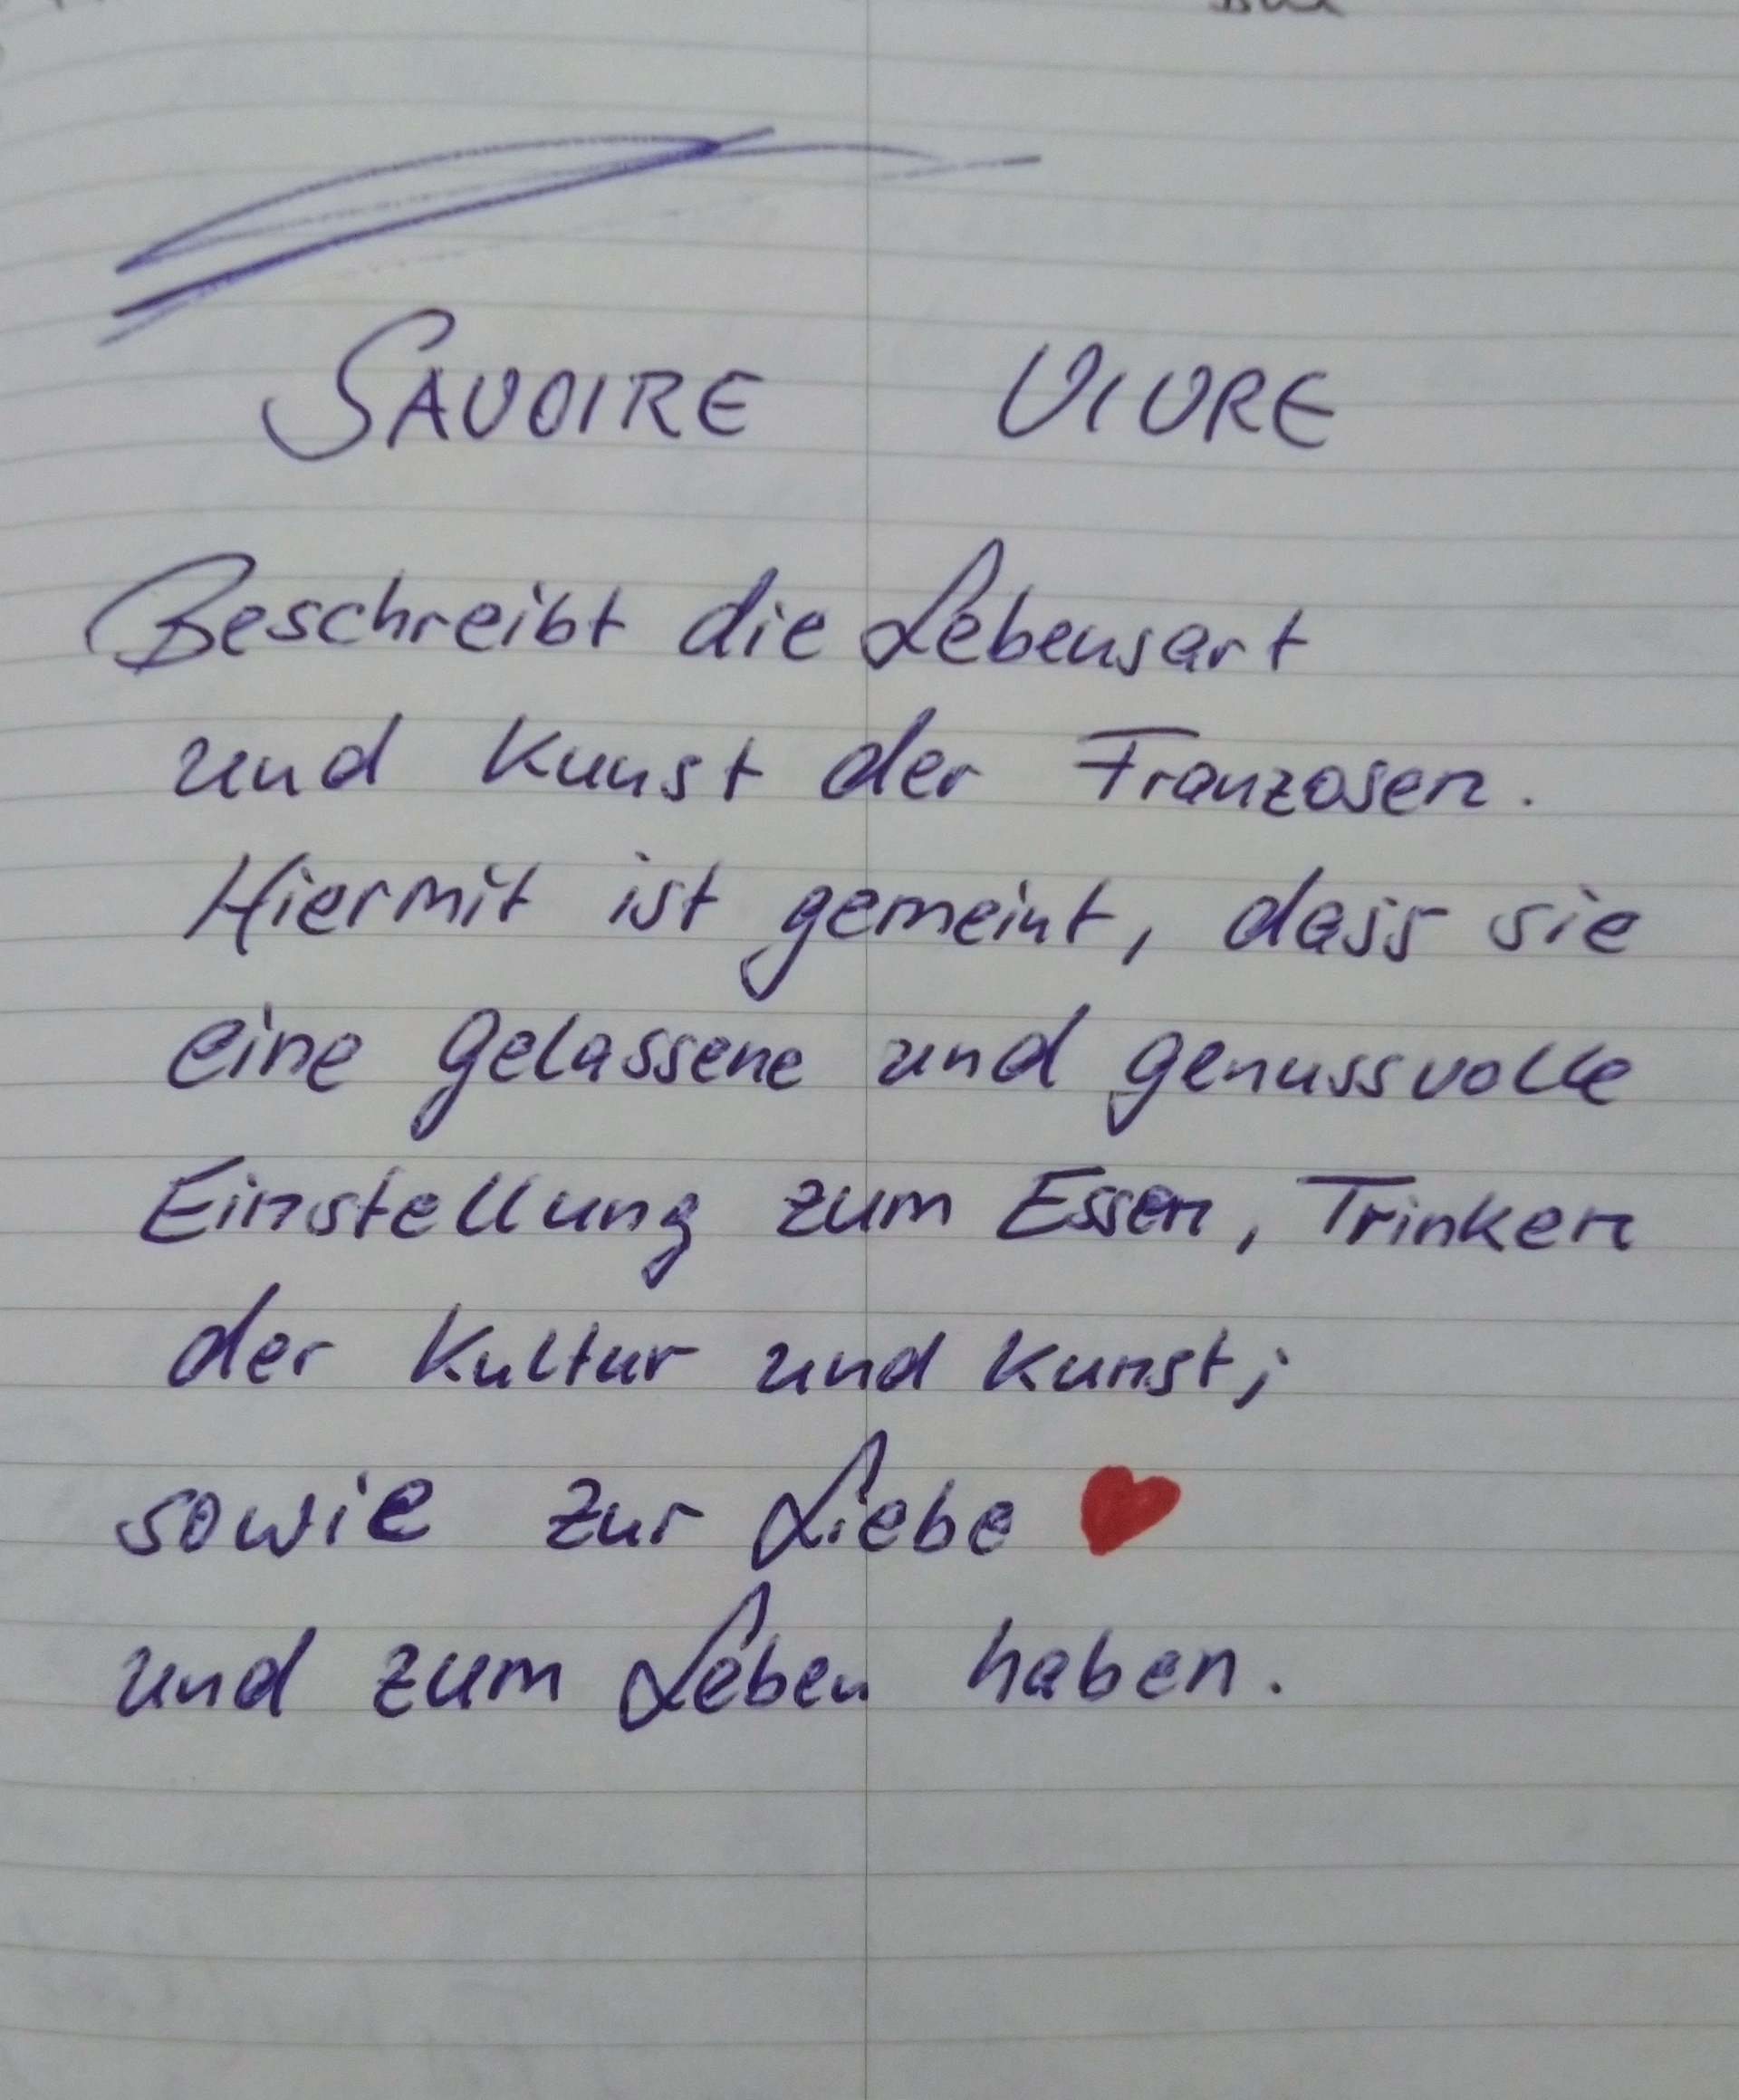 SAVOIRE VIVRE
Beschreibt die Lebensart
und Kunst der Franzosen.
Hiermit ist gemeint, dass sie
eine gelassene und genussvolle
Einstellung zum Essen, Trinken
der Kultur und Kunst;
sowie zur Liebe ❤
und zum Leben haben.